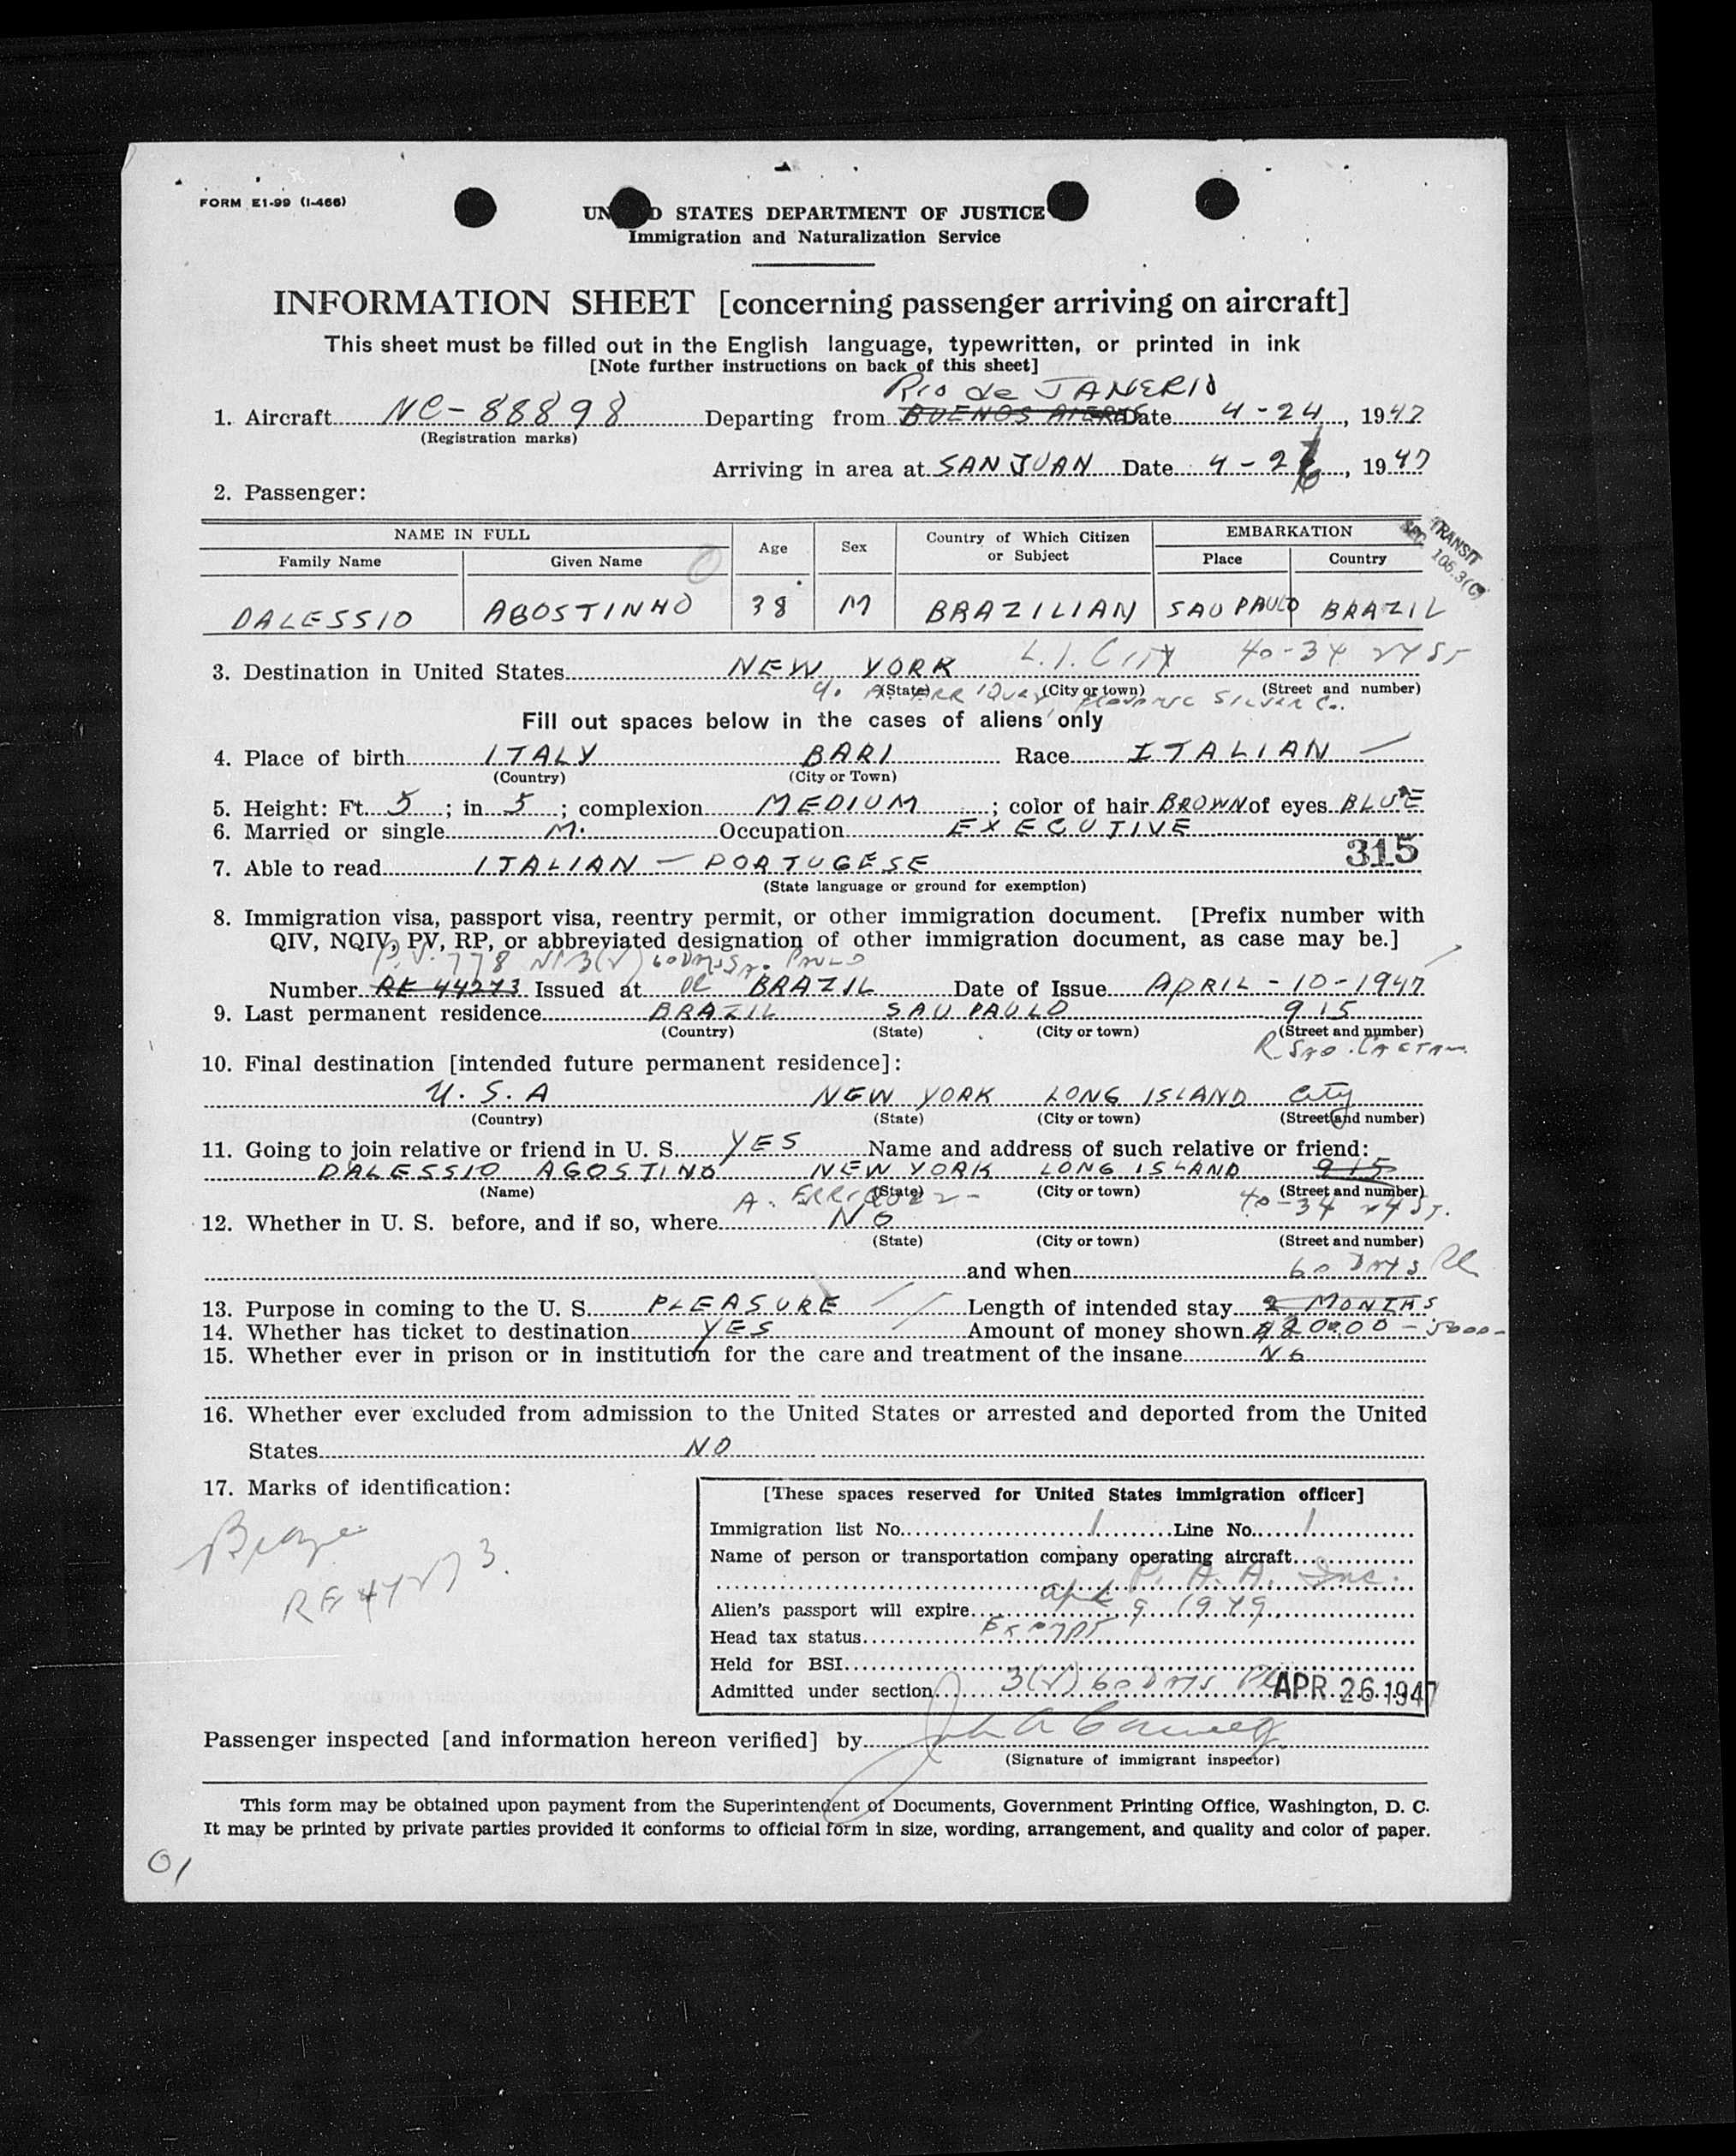 FORM E1-99 (I-466)
UN D STATES DEPARTMENT OF JUSTICE
Immigration and Naturalization Service
INFORMATION SHEET [concerning passenger arriving on aircraft]
This sheet must be filled out in the English language, typewritten, or printed in ink
[Note further instructions on back of this sheet]
RIO de JANERIO
1. Aircraft NC-88898 Departing from BUENOS AIERES Date 4-24, 1947
(Registration marks)
Arriving in area at SAN JUAN Date 4-26, 1947
2. Passenger:
NAME IN FULL Age Sex Country of Which Citizen or Subject EMBARKATION
Family Name Given Name Place Country
TRANSIT
SEC. 105.3(C)
DALESSIO AGOSTINHO 38 M BRAZILIAN SAU PAULO BRAZIL
3. Destination in United States NEW YORK L.I. City 40-34 24 ST
(State) (City or town) (Street and number)
SILVER Co.
Fill out spaces below in the cases of aliens only
4. Place of birth ITALY BARI Race ITALIAN
(Country) (City or Town)
5. Height: Ft. 5; in 5; complexion MEDIUM; color of hair BROWN of eyes BLUE
6. Married or single M. Occupation EXECUTIVE
315
7. Able to read ITALIAN - PORTUGESE
(State language or ground for exemption)
8. Immigration visa, passport visa, reentry permit, or other immigration document. [Prefix number with
QIV, NQIV, PV, RP, or abbreviated designation of other immigration document, as case may be.]
P.V. 778 NI 3(2) 60 DAYS Sao PAULO
Number RE 44273 Issued at BRAZIL Date of Issue APRIL-10-1947
9. Last permanent residence BRAZIL SAU PAULO 915
(Country) (State) (City or town) (Street and number)
R. SAO. CAETANO
10. Final destination [intended future permanent residence]:
U.S.A NEW YORK LONG ISLAND City
(Country) (State) (City or town) (Street and number)
11. Going to join relative or friend in U. S. YES Name and address of such relative or friend:
DALESSIO AGOSTINO NEW YORK LONG ISLAND 915
(Name) (State) (City or town) (Street and number)
A. ERRIQUEZ - 40-34 24 ST.
12. Whether in U. S. before, and if so, where NO
(State) (City or town) (Street and number)
and when 60 DAYS Pl
13. Purpose in coming to the U. S. PLEASURE Length of intended stay 2 MONTHS
14. Whether has ticket to destination YES Amount of money shown 20000 - 5000-
15. Whether ever in prison or in institution for the care and treatment of the insane NO
16. Whether ever excluded from admission to the United States or arrested and deported from the United
States NO
17. Marks of identification:
RE 44273.
[These spaces reserved for United States immigration officer]
Immigration list No. 1 Line No. 1
Name of person or transportation company operating aircraft
P. A. A. Inc.
Alien's passport will expire apr 9 1949
Head tax status Exempt
Held for BSI
Admitted under section 3(2) 60 DAYS Pl APR 26 1947
Passenger inspected [and information hereon verified] by
(Signature of immigrant inspector)
This form may be obtained upon payment from the Superintendent of Documents, Government Printing Office, Washington, D. C.
It may be printed by private parties provided it conforms to official form in size, wording, arrangement, and quality and color of paper.
01